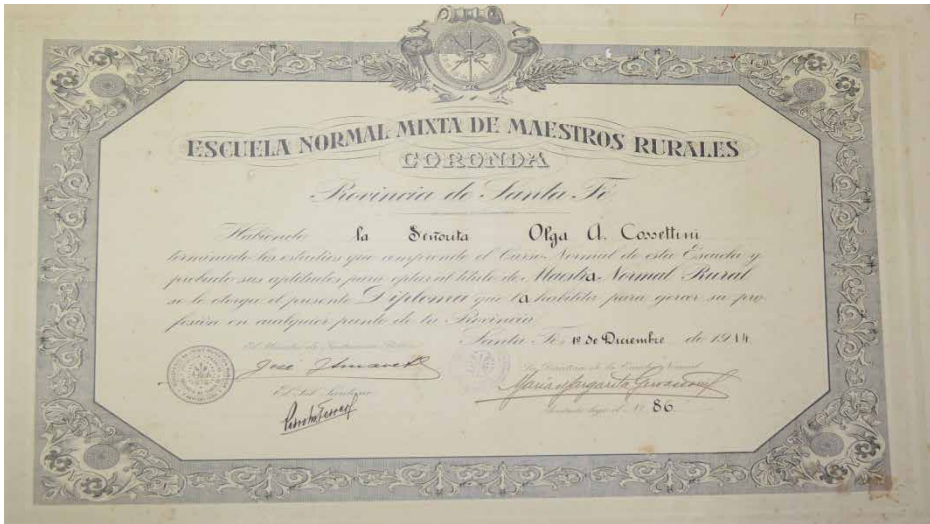 ESCUELA NORMAL MIXTA DE MAESTROS RURALES
CORONDA
Provincia de Santa Fé
Habiendo la Señorita Olga A. Cossettini
terminado los estudios que comprende el Curso Normal de esta Escuela y
probado sus aptitudes para optar al título de Maestra Normal Rural
se le otorga el presente Diploma que la habilita para ejercer su pro-
fesión en cualquier punto de la Provincia
Santa Fé, 1º de Diciembre de 1914
El Ministro de Instrucción Pública
La Directora de la Escuela Normal
José
María Margarita Gervasoni
El Sub-Secretario
Anotado bajo el Nº 86